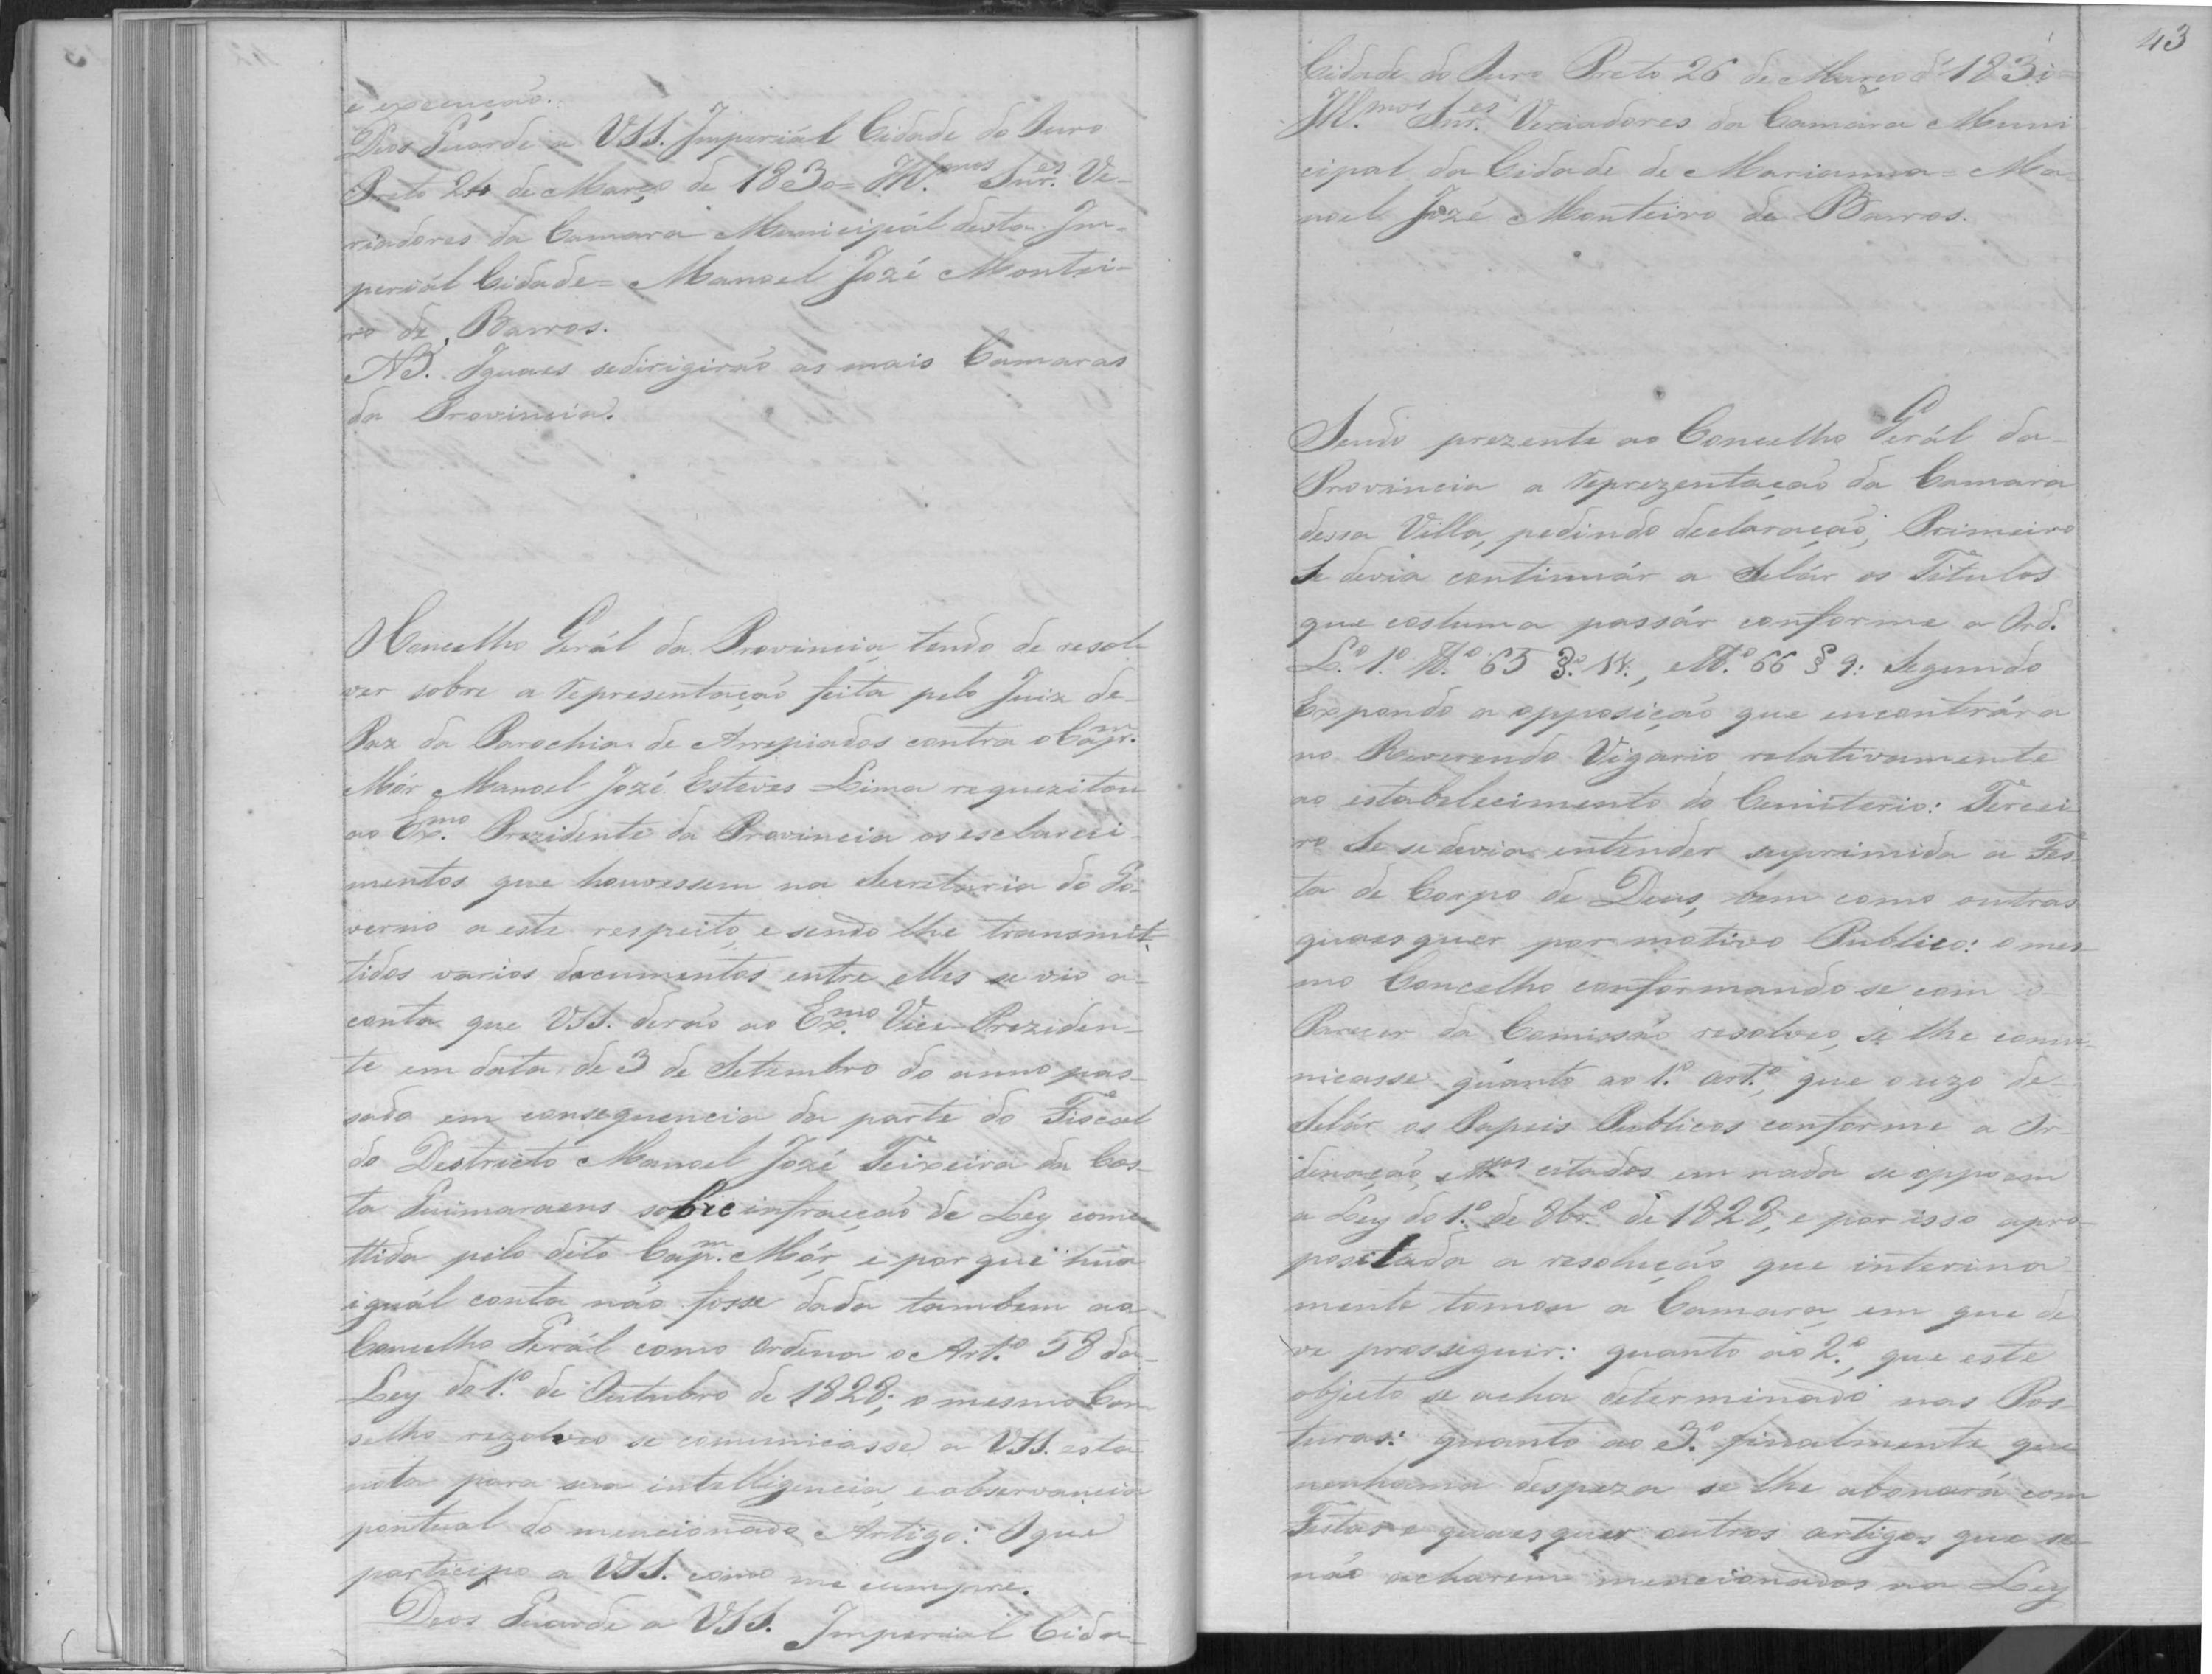 e execução.
Deos Guarde a VSS. Imperiál Cidade do Ouro
Preto 24 de Março de 1830= Ill.mos Snr.es Ve-
riadores da Camara Municipál desta Im-
periál Cidade= Manoel Jozé Montei-
ro de Barros.
NB. Iguaes sedirigirão as mais Camaras
da Provincia.
O Concelho Gerál da Provincia tendo de resol-
ver sobre a representação feita pelo Juiz de
Paz da Parochia de Arrepiados contra o Cap.m
Mór Manoel Jozé Esteves Lima requezitou
ao Ex.mo Prezidente da Provincia os esclareci-
mentos que houvessem na Secretaria do Go-
verno a este respeito, e sendo lhe transmit-
tidos varios documentos entre elles se vio a
conta que VSS. derão ao Ex.mo Vice-Preziden-
te em data de 3 de Setembro do anno pas-
sado em consequencia da parte do Fiscal
do Destricto Manoel Jozé Teixeira da Cos-
ta Guimaraens sobre infracção de Ley come-
ttida pelo dito Cap.m Mór, e por que hũa
iguál conta não fosse dada tambem ao
Concelho Gerál como ordena o Art.o 58 da
Ley do 1.o de Outubro de 1828; o mesmo Con-
selho rezolveo se comunicasse a VSS. esta
nota para sua intelligencia, e observancia
pontual do mencionado Artigo: O que
participo a VSS. como me cumpre.
Deos Guarde a VSS. Imperial Cida-
43
Cidade do Ouro Preto 26 de Março de 1830=
Ill.mos Snr.es Veriadores da Camara Muni
cipal da Cidade de Marianna= Ma-
noel Jozé Monteiro de Barros.
Sendo prezente ao Concelho Gerál da
Provincia a reprezentação da Camara
dessa Villa, pedindo declaração, Primeiro
Se devia continuár a Selár os Titulos
que costuma passár conforme a Ord.
L.o 1.o tt.o 65 §. , e tt.o 66 § 9: Segundo
Expondo a opposição que encontrára
no Reverendo Vigario relativamente
ao estabelecimento do Cemiterio: Tercei
ro Se se devia entender suprimida a Fes
ta de Corpo de Deus, bem como outras
quaes quer por motivo Publico: o mes-
mo Concelho conformando se com o
Parecer da Comissão resolveo, se lhe comu-
nicasse quanto ao 1.o art.o, que o uzo de
Selár os Papeis Publicos conforme a Or-
denação, e tt.os citados em nada se oppoem
a Ley do 1.o de 8br.o de 1828, e por isso apro-
positada a resolução que interina
mente tomou a Camara, em que de
ve prosseguir: quanto ao 2.o, que este
objecto se acha determinado nas Pos
turas: quanto ao 3.o finalmente que
nenhuma despeza se lhe abonará com
Festas e quaes quer outros artigos que se
não acharem mencionados na Ley